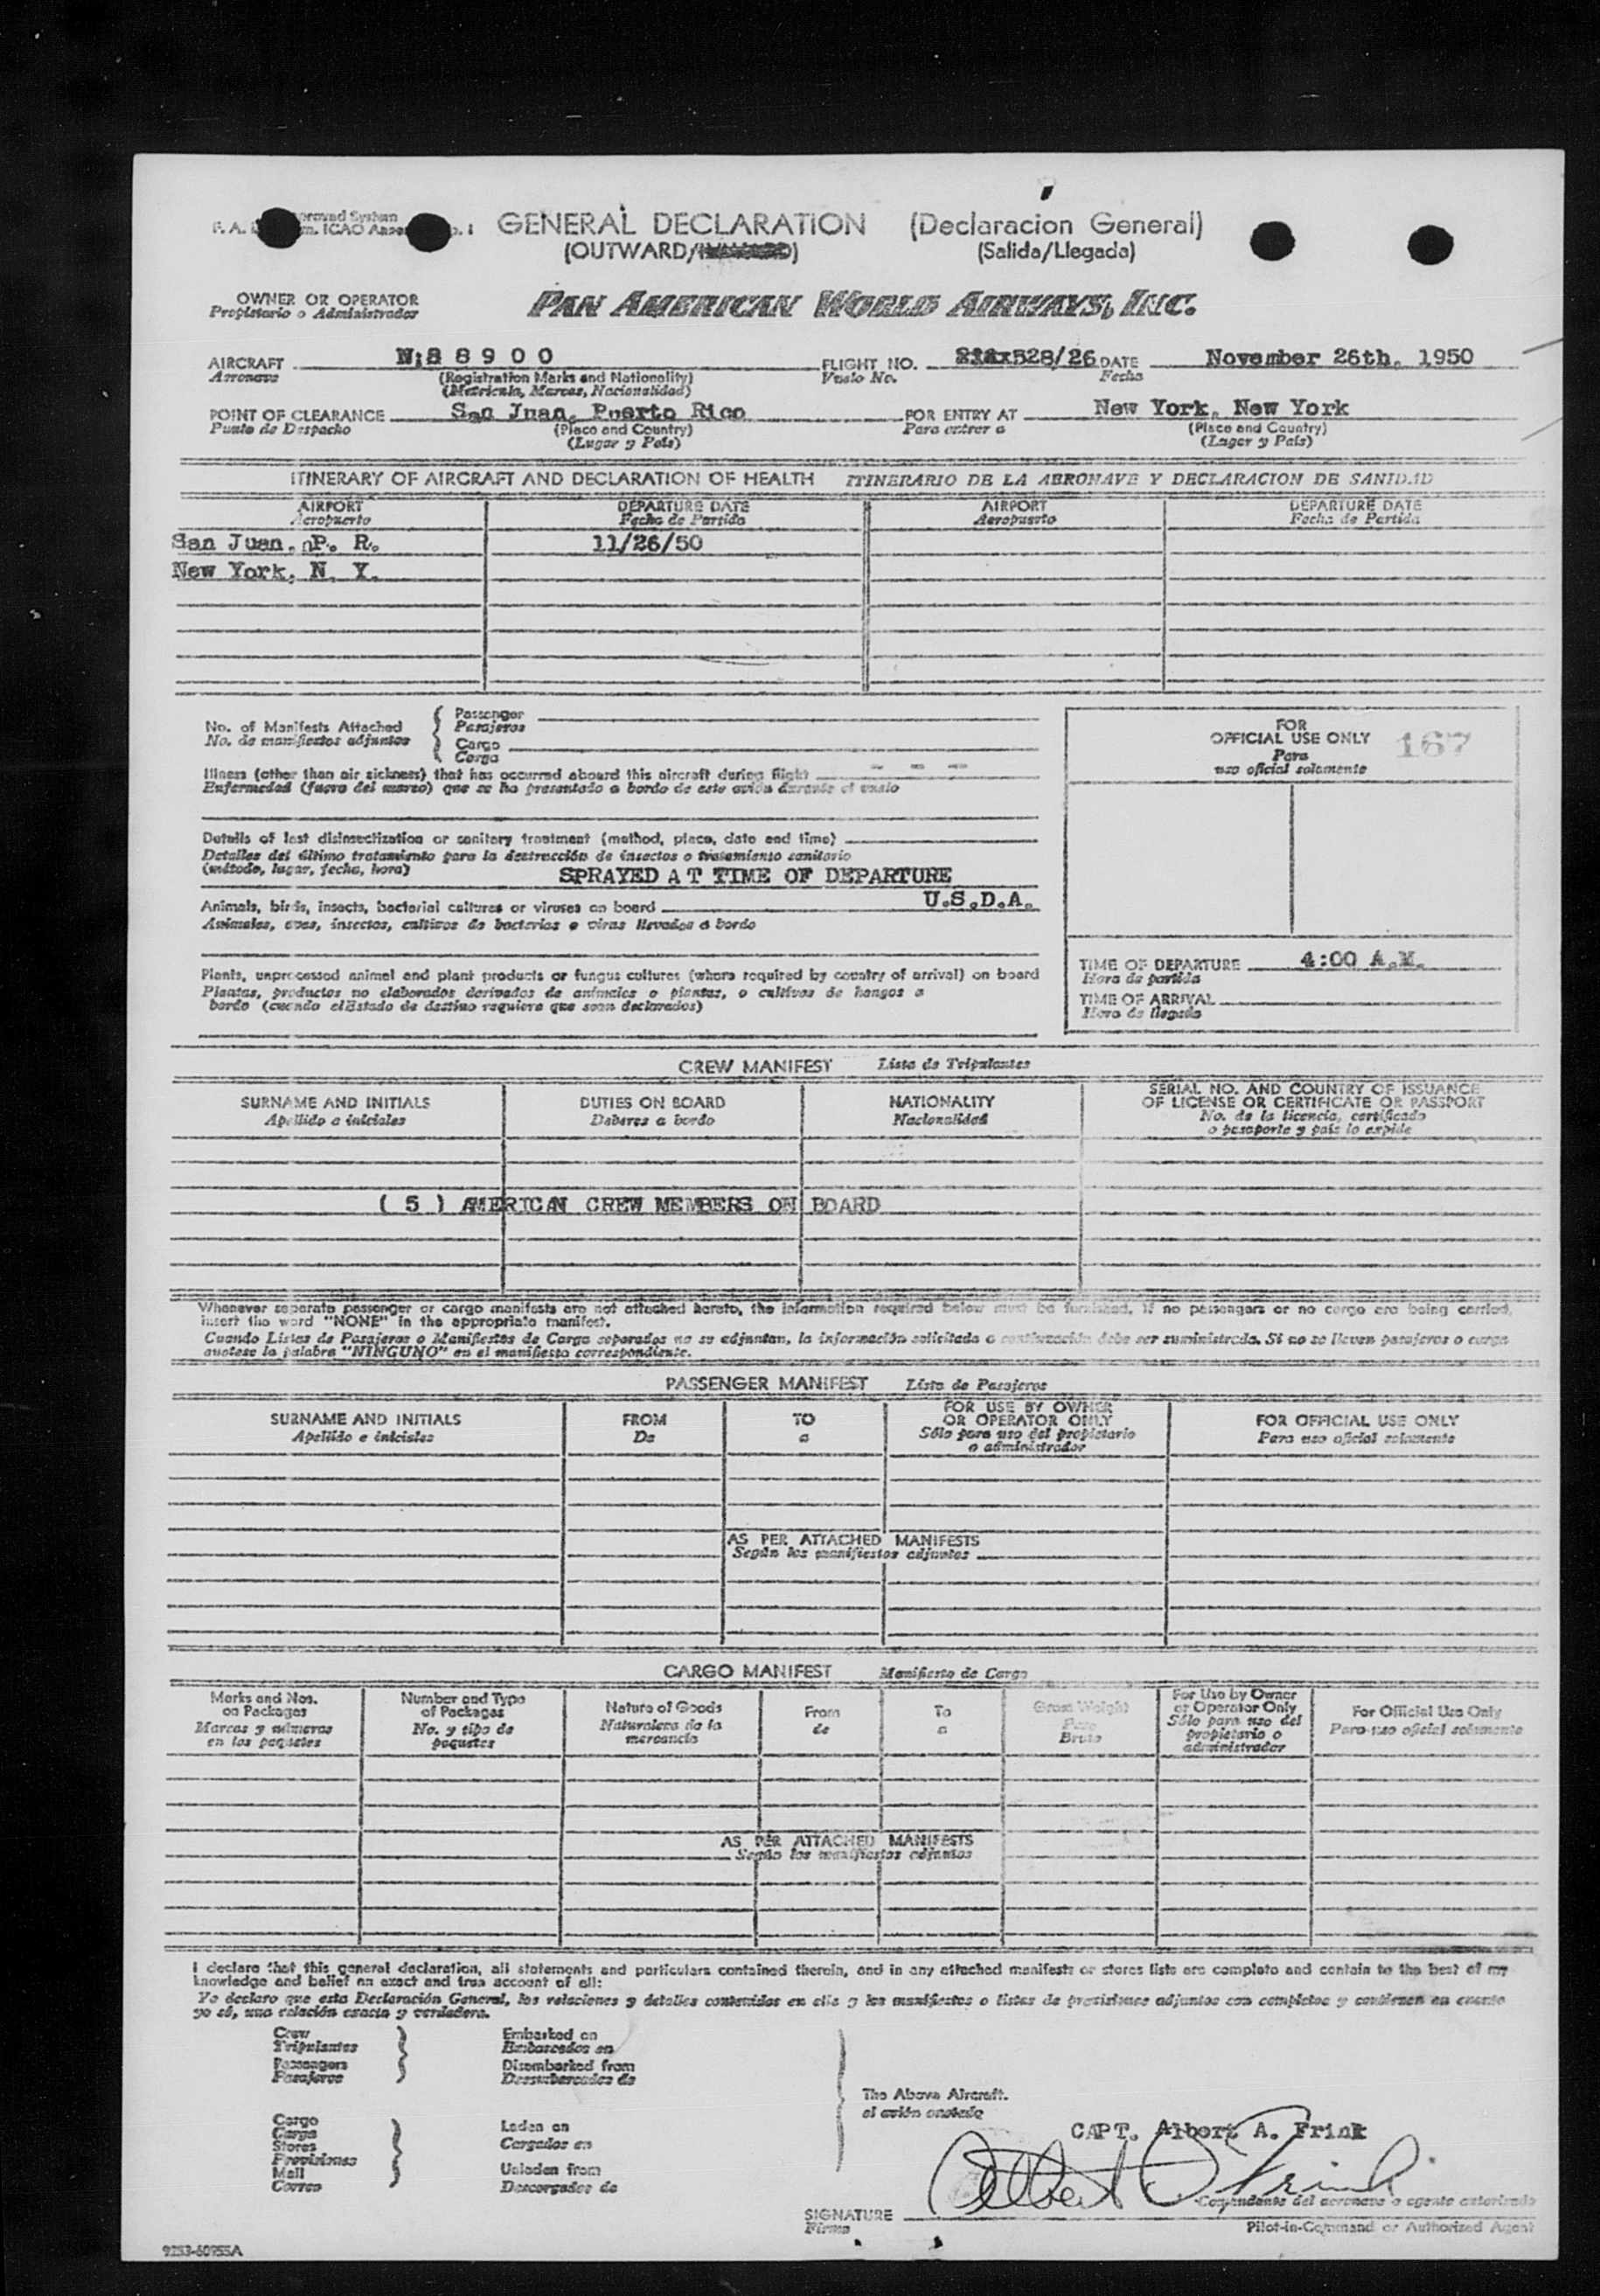 GENERAL DECLARATION (Declaracion General)
(OUTWARD/ (Salida/Llegada)
OWNER OR OPERATOR
Propietario o Administrador
PAN AMERICAN WORLD AIRWAYS, INC.
AIRCRAFT N:88900 FLIGHT NO. 528/26 DATE November 26th, 1950
Aeronave (Registration Marks and Nationality) Vuelo No. Fecha
(Matricula, Marcas, Nacionalidad)
POINT OF CLEARANCE San Juan, Puerto Rico FOR ENTRY AT New York, New York
Punto de Despacho (Place and Country) Para entrar a (Place and Country)
(Lugar y País) (Lugar y País)
ITINERARY OF AIRCRAFT AND DECLARATION OF HEALTH ITINERARIO DE LA AERONAVE Y DECLARACION DE SANIDAD
AIRPORT DEPARTURE DATE AIRPORT DEPARTURE DATE
Aeropuerto Fecha de Partida Aeropuerto Fecha de Partida
San Juan, P. R. 11/26/50
New York, N. Y.
No. of Manifests Attached
No. de manifiestos adjuntos
Passenger
Pasajeros
Cargo
Carga
FOR
OFFICIAL USE ONLY 167
Para
uso oficial solamente
Illness (other than air sickness) that has occurred aboard this aircraft during flight - - -
Enfermedad (fuera del mareo) que se ha presentado a bordo de este avión durante el vuelo
Details of last disinsectization or sanitary treatment (method, place, date and time)
Detalles del último tratamiento para la destrucción de insectos o tratamiento sanitario
(método, lugar, fecha, hora)
SPRAYED AT TIME OF DEPARTURE
Animals, birds, insects, bacterial cultures or viruses on board U.S.D.A.
Animales, aves, insectos, cultivos de bacterias o virus llevados a bordo
Plants, unprocessed animal and plant products or fungus cultures (where required by country of arrival) on board
Plantas, productos no elaborados derivados de animales o plantas, o cultivos de hongos a
bordo (cuando el Estado de destino requiere que sean declarados)
TIME OF DEPARTURE 4:00 A.M.
Hora de partida
TIME OF ARRIVAL
Hora de llegada
CREW MANIFEST Lista de Tripulantes
SURNAME AND INITIALS DUTIES ON BOARD NATIONALITY SERIAL NO. AND COUNTRY OF ISSUANCE
OF LICENSE OR CERTIFICATE OR PASSPORT
Apellido e iniciales Deberes a bordo Nacionalidad No. de la licencia, certificado
o pasaporte y país lo expide
( 5 ) AMERICAN CREW MEMBERS ON BOARD
Whenever separate passenger or cargo manifests are not attached hereto, the information required below must be furnished. If no passengers or no cargo are being carried,
insert the word "NONE" in the appropriate manifest.
Cuando Listas de Pasajeros o Manifiestos de Carga separados no se adjuntan, la información solicitada a continuación debe ser suministrada. Si no se llevan pasajeros o carga
anotese la palabra "NINGUNO" en el manifiesto correspondiente.
PASSENGER MANIFEST Lista de Pasajeros
SURNAME AND INITIALS FROM TO FOR USE BY OWNER
OR OPERATOR ONLY FOR OFFICIAL USE ONLY
Apellido e iniciales De a Sólo para uso del propietario
o administrador Para uso oficial solamente
AS PER ATTACHED MANIFESTS
Según los manifiestos adjuntos
CARGO MANIFEST Manifiesto de Carga
Marks and Nos.
on Packages
Marcas y números
en los paquetes
Number and Type
of Packages
No. y tipo de
paquetes
Nature of Goods
Naturaleza de la
mercancía
From
de
To
a
Gross Weight
Peso
Bruto
For Use by Owner
or Operator Only
Sólo para uso del
propietario o
administrador
For Official Use Only
Para uso oficial solamente
AS PER ATTACHED MANIFESTS
Según los manifiestos adjuntos
I declare that this general declaration, all statements and particulars contained therein, and in any attached manifests or stores lists are complete and contain to the best of my
knowledge and belief an exact and true account of all:
Yo declaro que esta Declaración General, las relaciones y detalles contenidos en ella y los manifiestos o listas de provisiones adjuntos son completos y contienen en cuanto
yo sé, una relación exacta y verdadera.
Crew
Tripulantes
Passengers
Pasajeros
Embarked on
Embarcados en
Disembarked from
Desembarcados de
Cargo
Carga
Stores
Provisiones
Mail
Correo
Laden on
Cargados en
Unladen from
Descargados de
The Above Aircraft.
el avión anotado
CAPT. Albert A. Frink
Albert A Frink
SIGNATURE
Firma
Comandante del aeronave o agente autorizado
Pilot-in-Command or Authorized Agent
9253-60955A